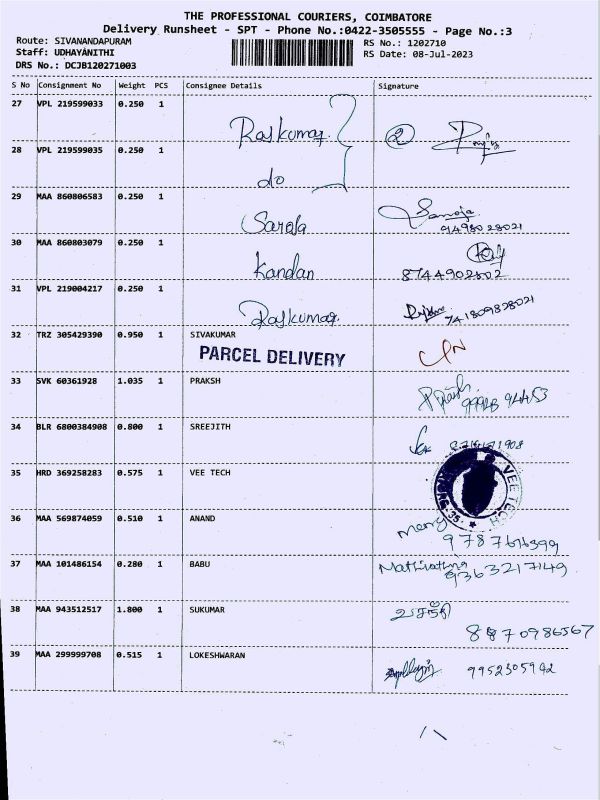 THE PROFESSIONAL COURIERS, COIMBATORE
Delivery Runsheet - SPT - Phone No.:0422-3505555 - Page No.:3
Route: SIVANANDAPURAM RS No.: 1202710
Staff: UDHAYANITHI RS Date: 08-Jul-2023
DRS No.: DCJB120271003
S No Consignment No Weight PCS Consignee Details Signature
27 VPL 219599033 0.250 1 Rajkumar 2
28 VPL 219599035 0.250 1 do
29 MAA 860806583 0.250 1 Saroja Saroja
9498028021
30 MAA 860803079 0.250 1 Kandan
8744902802
31 VPL 219004217 0.250 1 Rajkumar 741809828021
32 TRZ 305429390 0.950 1 SIVAKUMAR
PARCEL DELIVERY
33 SVK 60361928 1.035 1 PRAKSH
34 BLR 6800384908 0.800 1 SREEJITH
35 HRD 369258283 0.575 1 VEE TECH VEE TECH
36 MAA 569874059 0.510 1 ANAND
37 MAA 101486154 0.280 1 BABU
9363217149
38 MAA 943512517 1.800 1 SUKUMAR
8870986567
39 MAA 299999708 0.515 1 LOKESHWARAN 9952305942